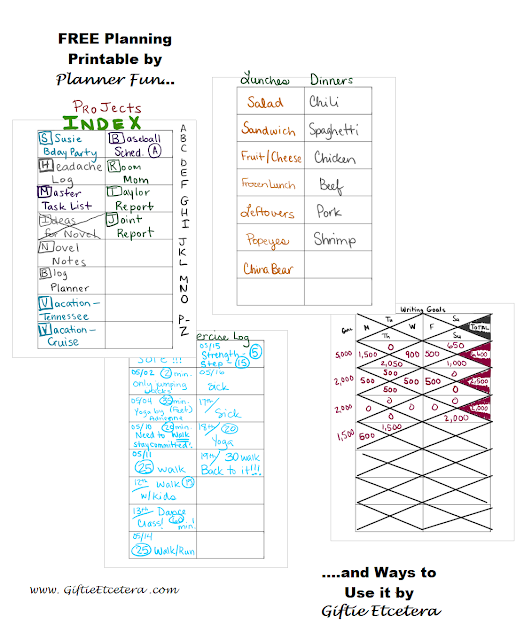 FREE Planning
Printable by
Planner Fun...
Projects
INDEX
S Susie
Bday Party
Headache
Log
Master
Task List
Ideas
for Novel
Novel
Notes
Blog
Planner
Vacation -
Tennessee
Vacation -
Cruise
Baseball
Sched. A
Room
Mom
Taylor
Report
Joint
Report
A
B
C
D
E
F
G
H
I
J
K
L
M
N
O
P-
Z
Lunches Dinners
Salad Chili
Sandwich Spaghetti
Fruit/Cheese Chicken
Frozen Lunch Beef
Leftovers Pork
Popeyes Shrimp
China Bear
ercise Log
05/02 2 min.
Only jumping
jacks
05/04 35 min.
Yoga by (Feet)
Adrienne
05/10 20 min.
Need to Walk
stay committed!
05/11
25 walk
12th Walk 15
w/kids
13th Dance
Class! 60
min!
05/14
25 Walk/Run
05/15
Strength - 5
Step - 15
05/16
Sick
17th/
Sick
18th/ 20
Yoga
19th/ 30 walk
Back to it!!!
Writing Goals
Goal M Tu W F Sa TOTAL
Th Su
5,000 1,500 0 900 500 650
2,050 1,000
2,000 500 500 500 500 0 2,500
500 0
2,000 0 0 0 0 0 2,000
0 2,000
1,500 500 1,500
www.GiftieEtcetera.com
....and Ways to
Use it by
Giftie Etcetera